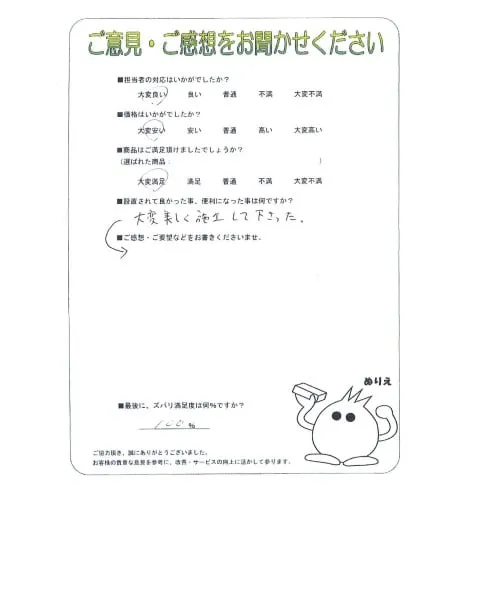 ご意見・ご感想をお聞かせください
■担当者の対応はいかがでしたか？
大変良い 良い 普通 不満 大変不満
■価格はいかがでしたか？
大変安い 安い 普通 高い 大変高い
■商品はご満足頂けましたでしょうか？
(選ばれた商品： )
大変満足 満足 普通 不満 大変不満
■設置されて良かった事、便利になった事は何ですか？
大変美しく施工して下さった。
■ご感想・ご要望などをお書きくださいませ。
ぬりえ
■最後に、ズバリ満足度は何％ですか？
100 %
ご協力頂き、誠にありがとうございました。
お客様の貴重な意見を参考に、改善・サービスの向上に活かして参ります。